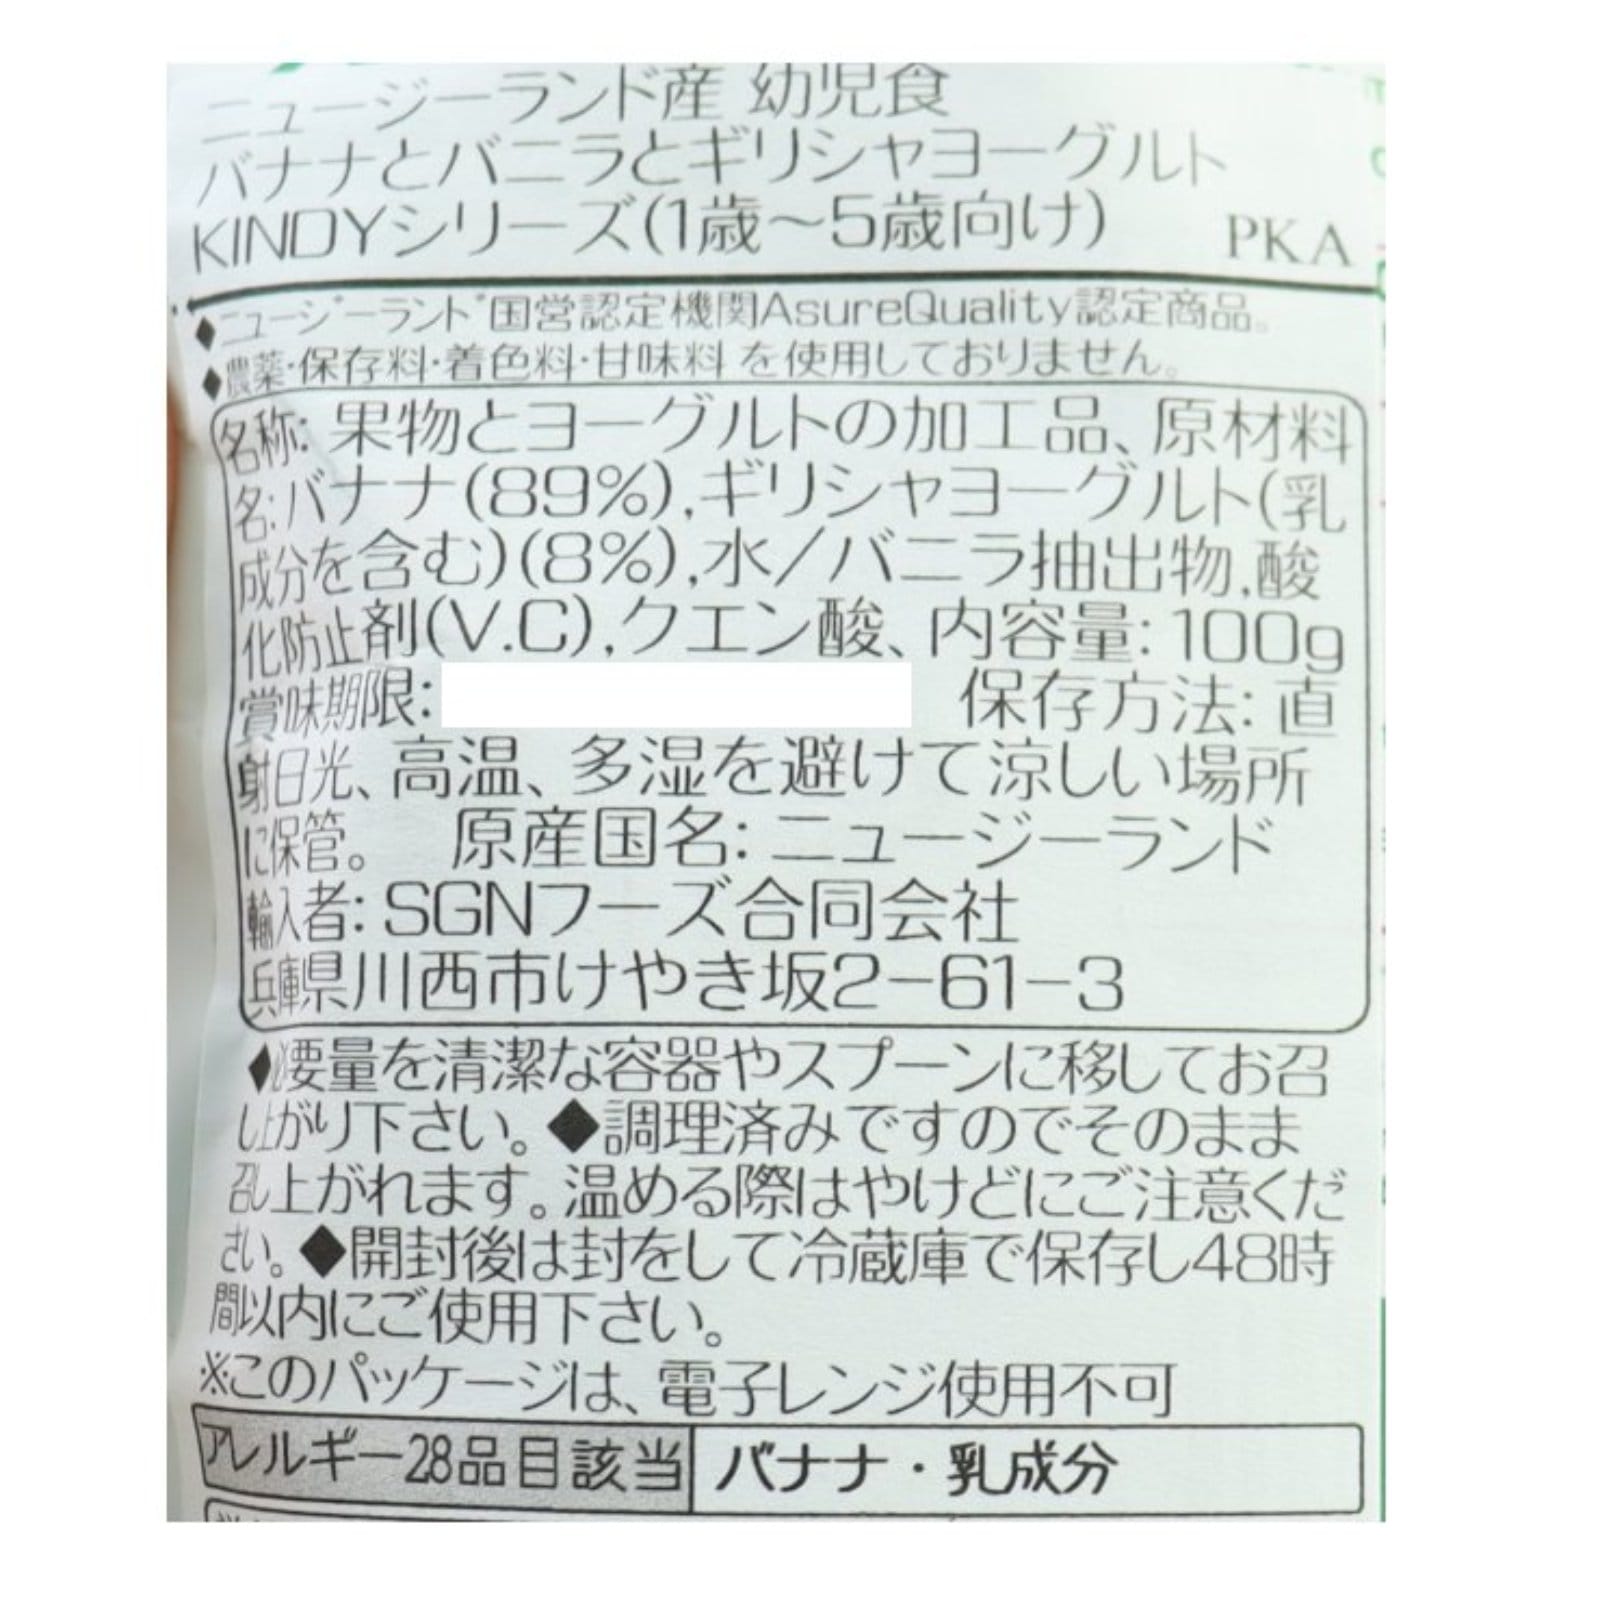 ニュージーランド産 幼児食
バナナとバニラとギリシャヨーグルト
KINDYシリーズ(1歳〜5歳向け) PKA
◆ニュージーランド国営認定機関AsureQuality認定商品。
◆農薬・保存料・着色料・甘味料 を使用しておりません。
名称: 果物とヨーグルトの加工品、原材料
名:バナナ(89%),ギリシャヨーグルト(乳
成分を含む)(8%),水/バニラ抽出物,酸
化防止剤(V.C),クエン酸、内容量:100g
賞味期限: 保存方法:直
射日光、高温、多湿を避けて涼しい場所
に保管。 原産国名:ニュージーランド
輸入者:SGNフーズ合同会社
兵庫県川西市けやき坂2-61-3
◆必要量を清潔な容器やスプーンに移してお召
し上がり下さい。◆調理済みですのでそのまま
召し上がれます。温める際はやけどにご注意くだ
さい。◆開封後は封をして冷蔵庫で保存し48時
間以内にご使用下さい。
※このパッケージは、電子レンジ使用不可
アレルギー28品目該当 バナナ・乳成分